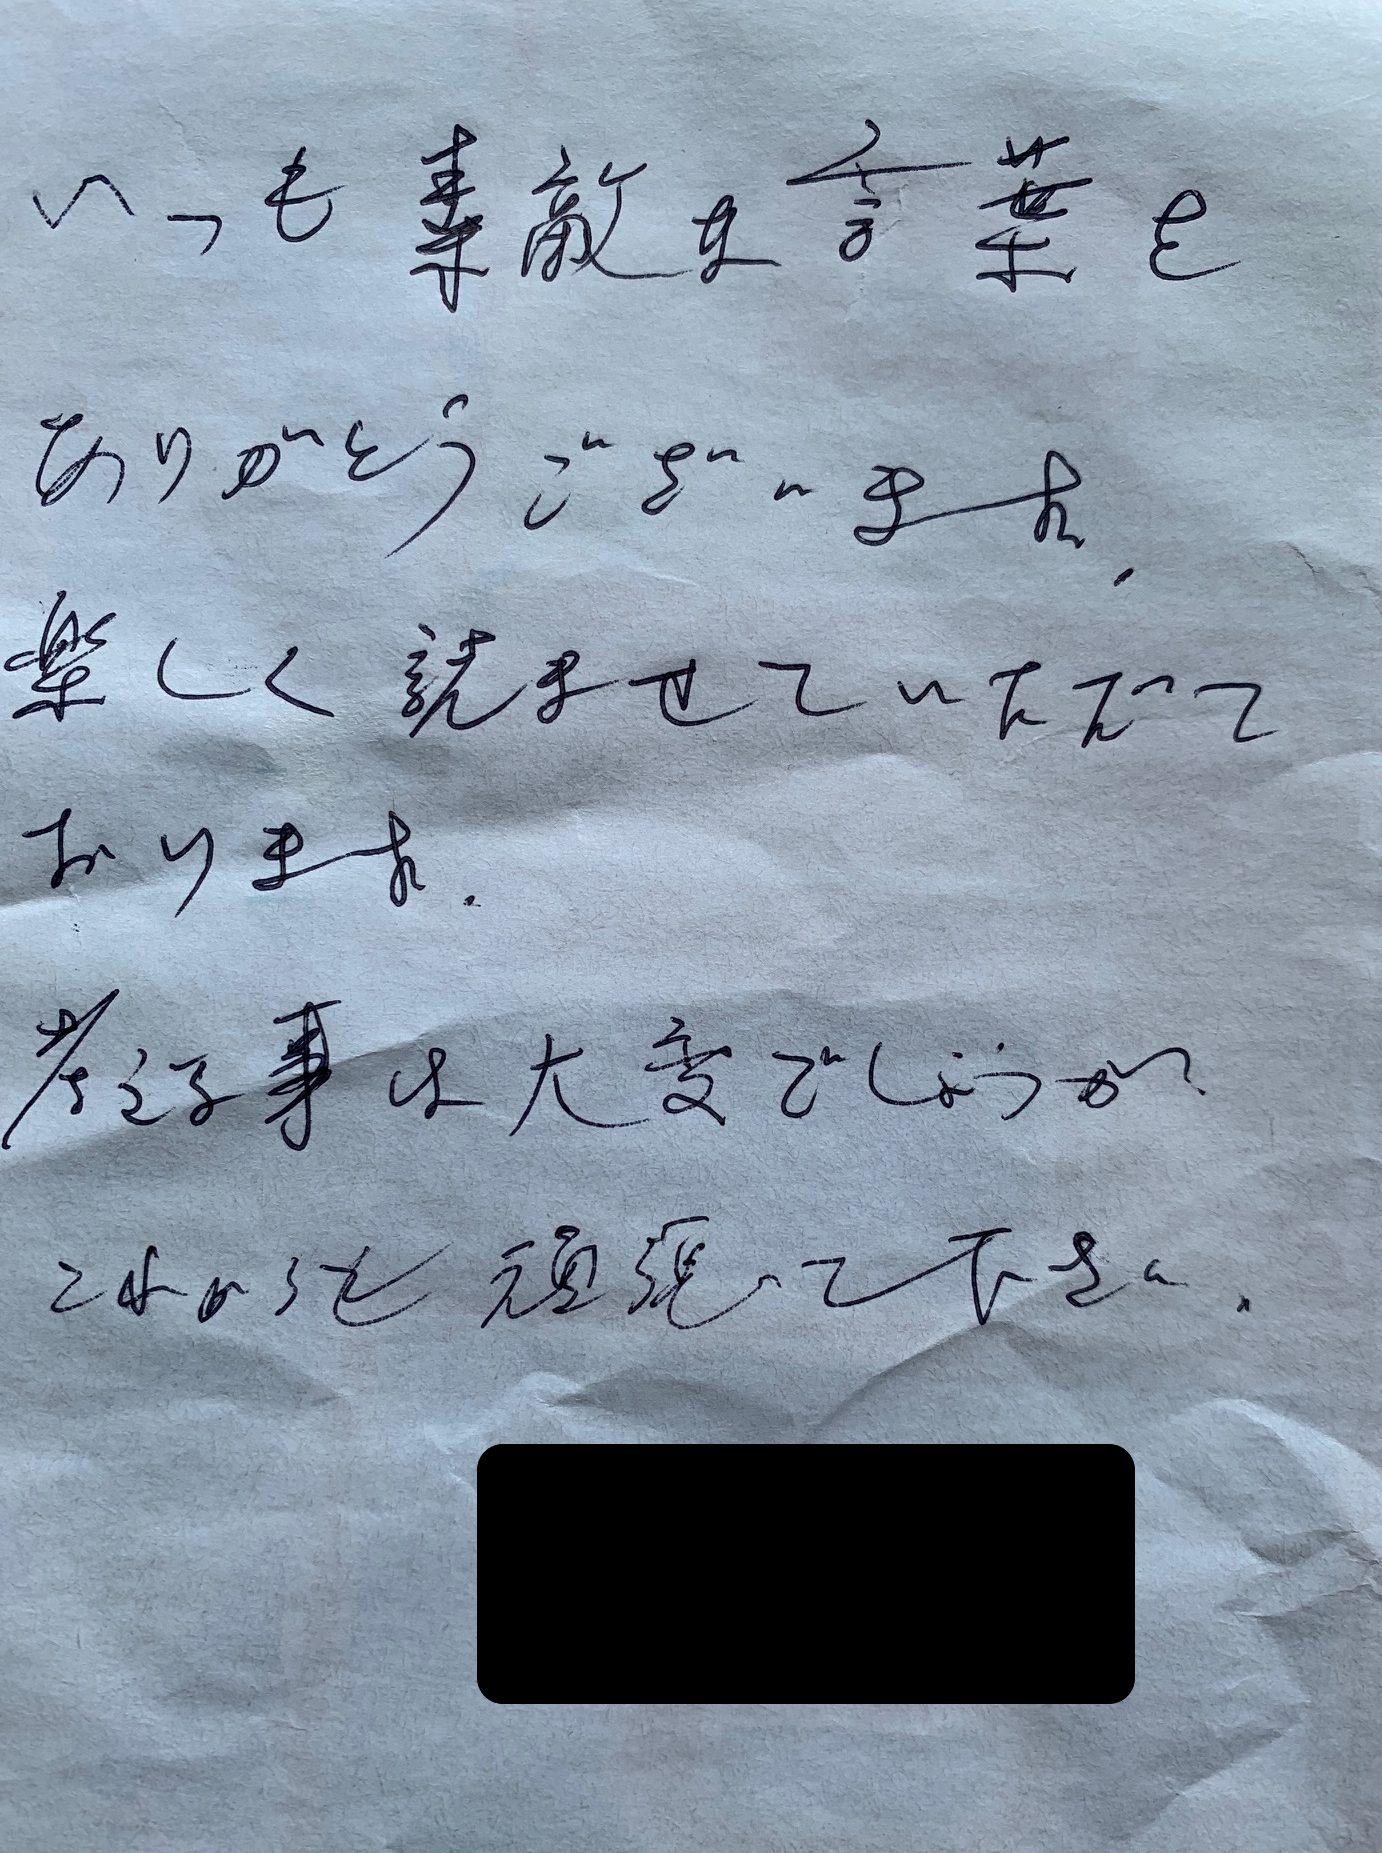 いつも素敵な言葉を
ありがとうございます.
楽しく読ませていただいて
おります.
考える事は大変でしょうが
これからも頑張って下さい.